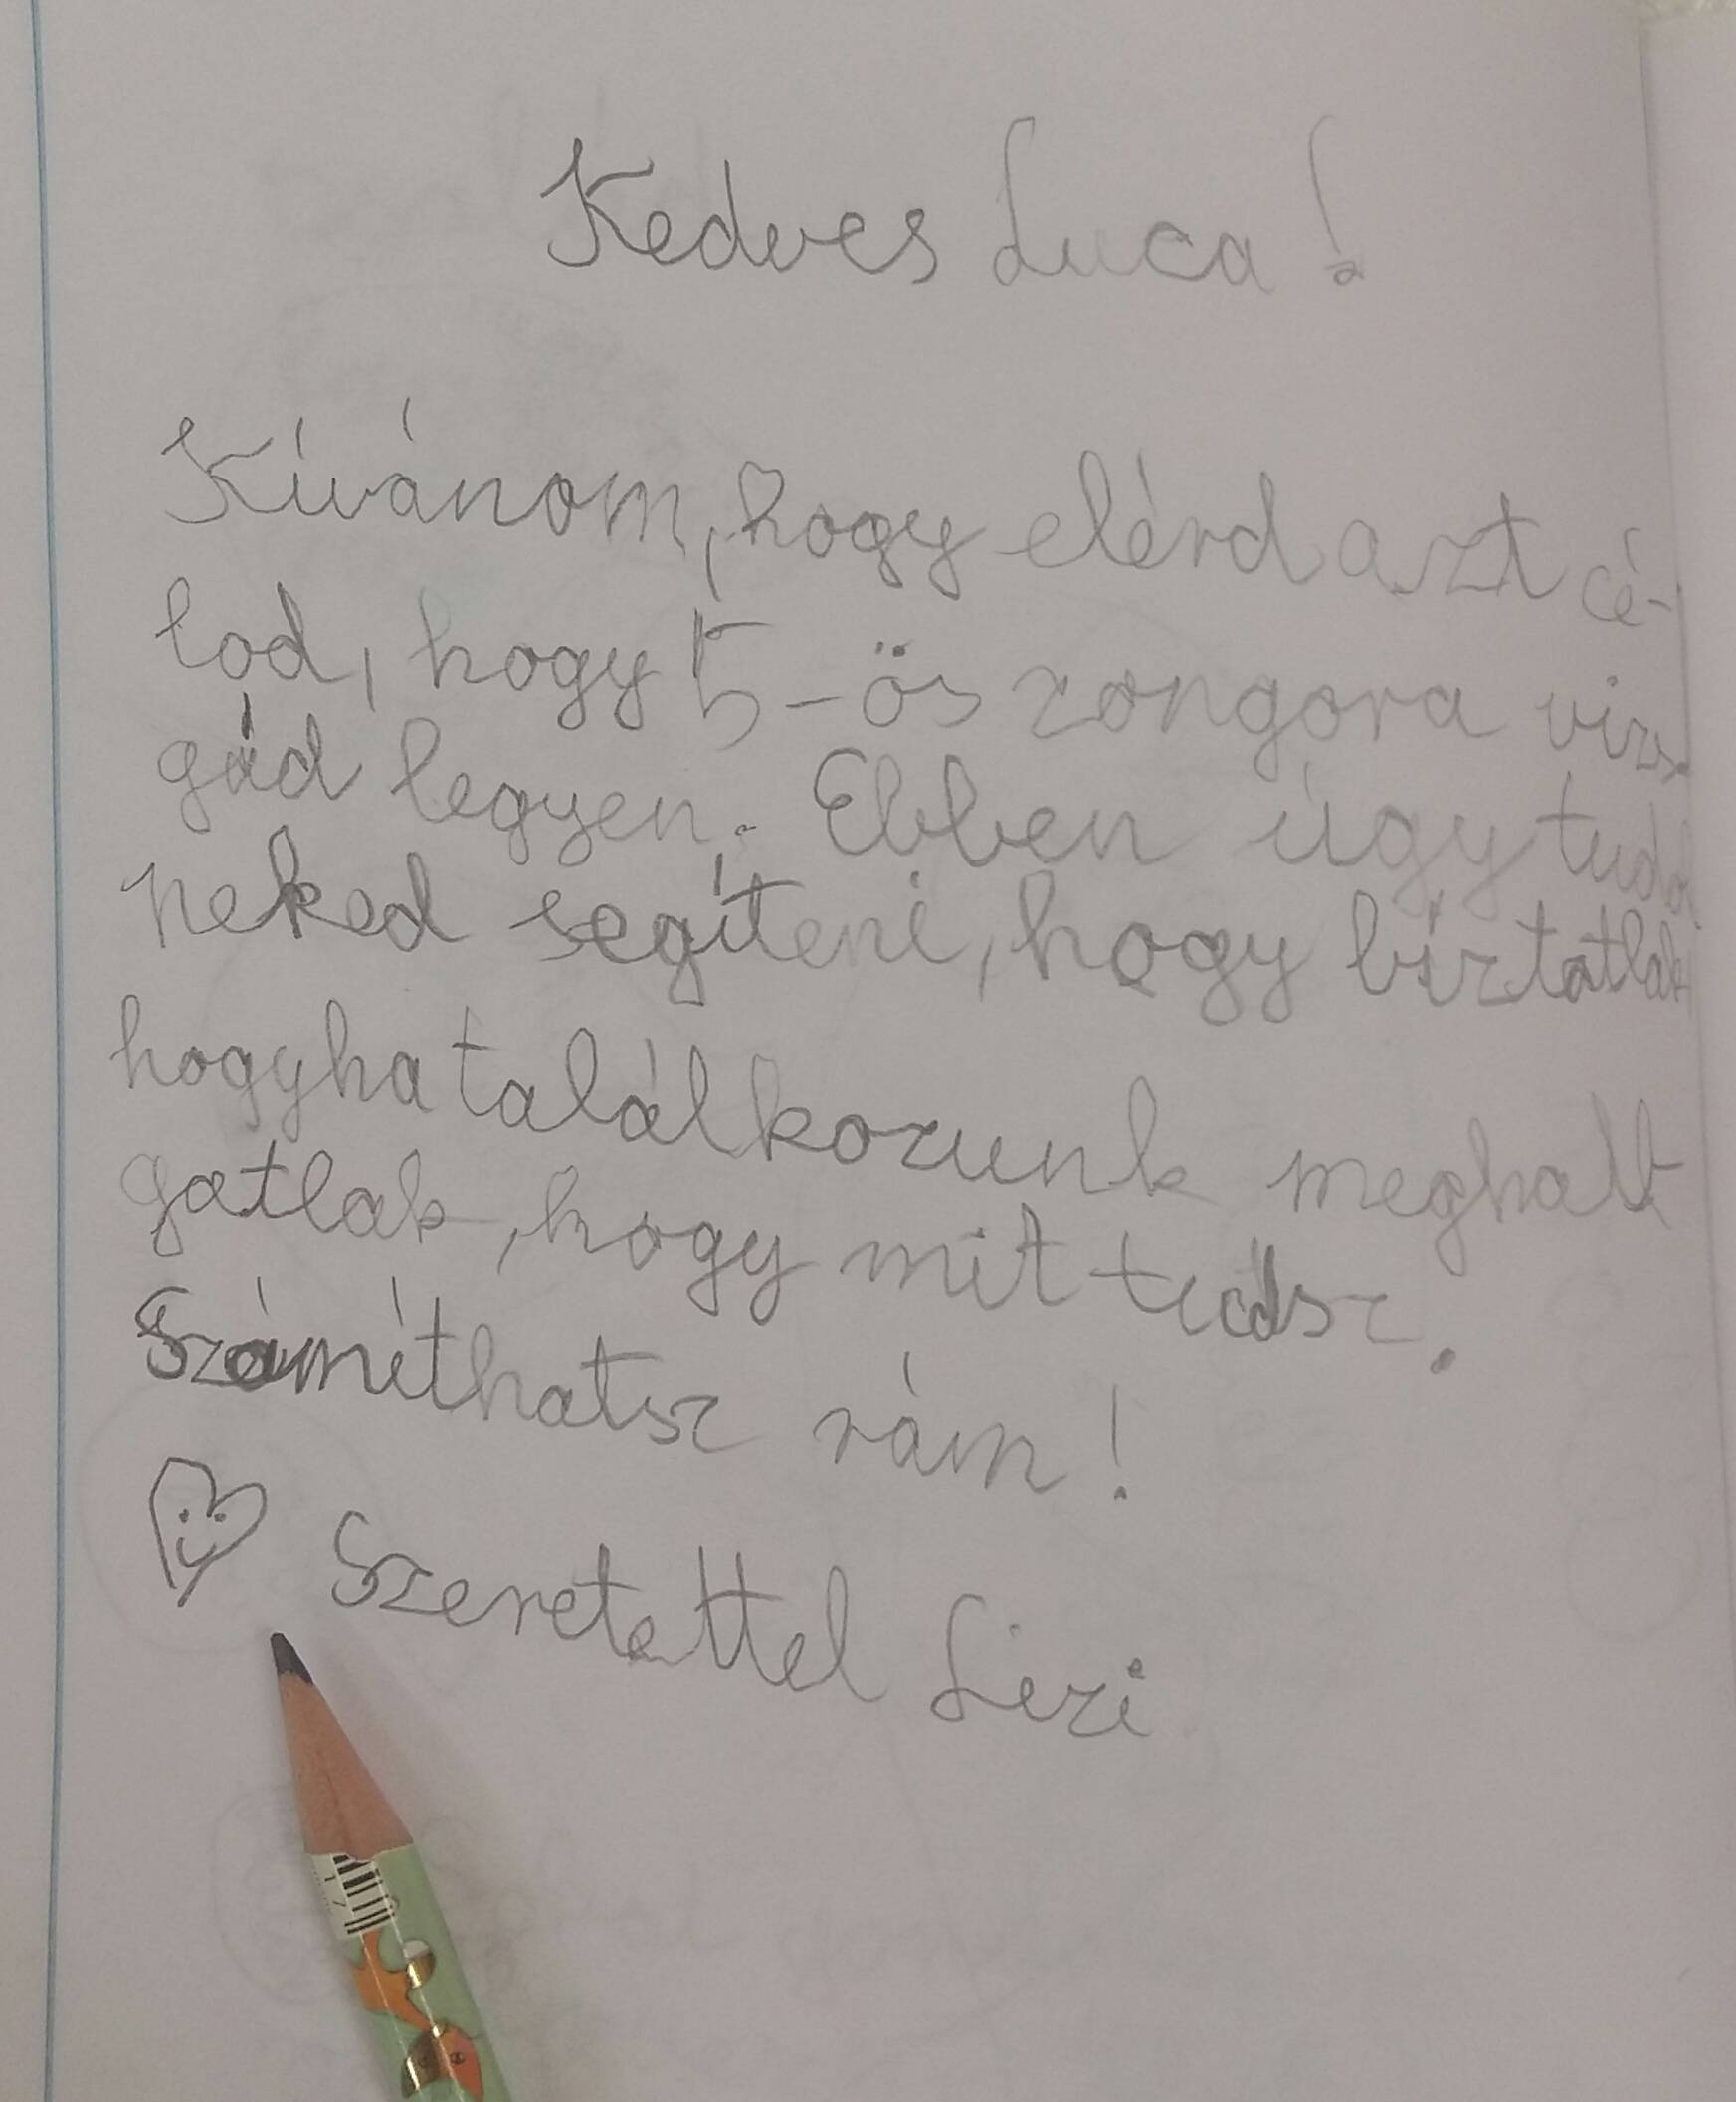 Kedves Luca!
Kívánom, hogy elérd azt cé-
lod, hogy 5-ös zongora vizs
gád legyen. Ebben úgy tudo
neked segíteni, hogy bíztatlak
hogyha találkozunk meghall
gatlak, hogy mit tudsz.
Számíthatsz rám!
Szeretettel Lizi